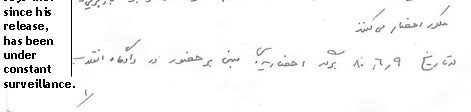 since his
release,
has been
under
constant
surveillance.
مذکور احضار می کنند
در تاریخ ۸۰،۶،۹ برگه احضاریه ای مبنی بر حضور در دادگاه انقلاب